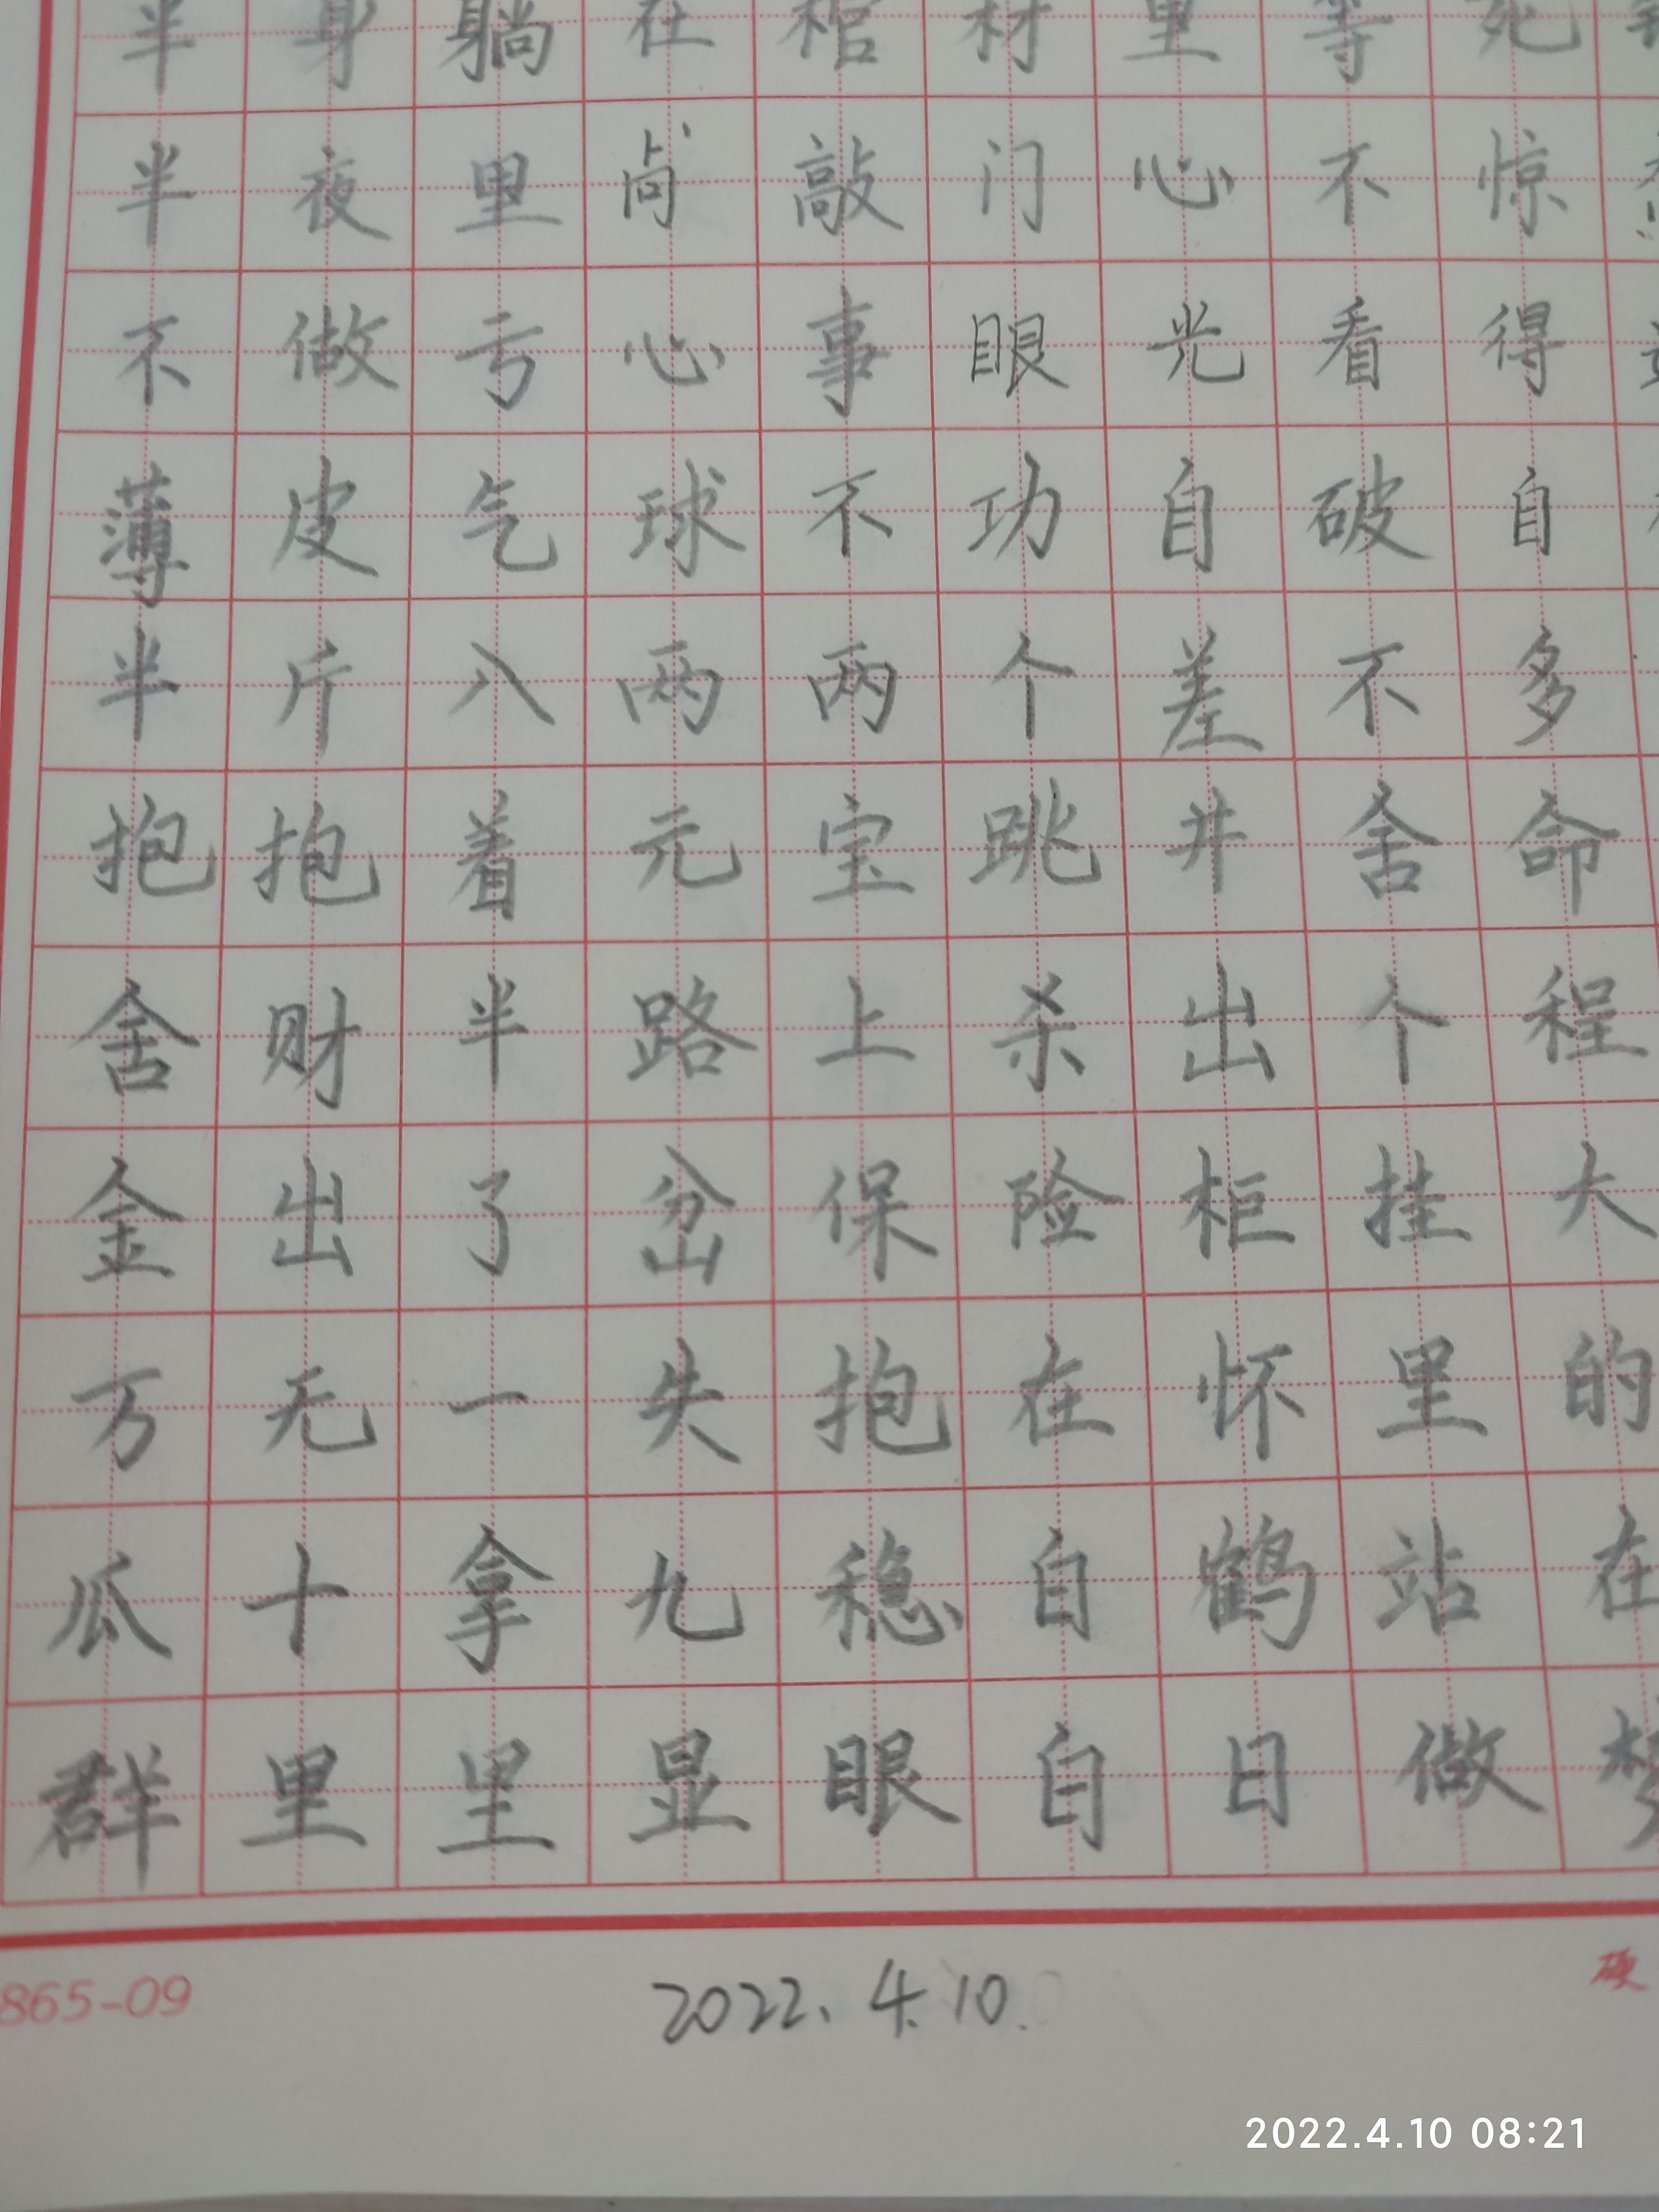 半身躺在棺材里等死
半夜里敲门心不惊
不做亏心事眼光看得
薄皮气球不功自破自
半斤八两两个差不多
抱抱着元宝跳井舍命
舍财半路上杀出个程
金出了岔保险柜挂大
万无一失抱在怀里的
瓜十拿九稳白鹤站在
群里里显眼白日做梦
865-09
2022.4.10.
硬
2022.4.10 08:21